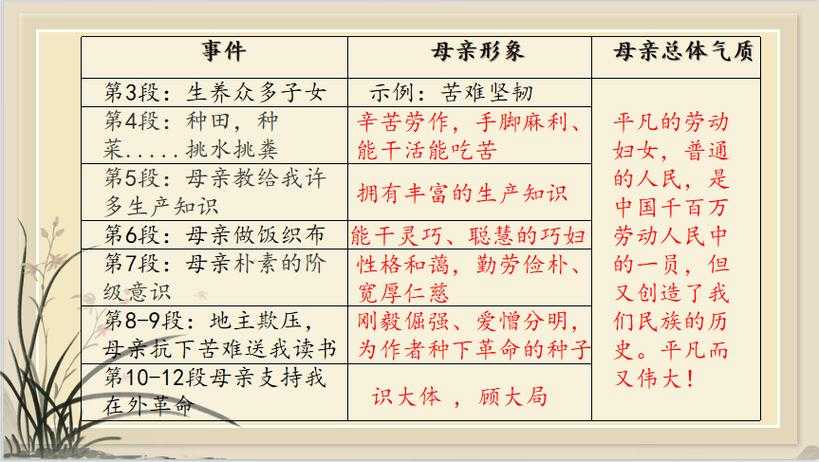 事件
母亲形象
母亲总体气质
第3段：生养众多子女
示例：苦难坚韧
第4段：种田，种
菜.....挑水挑粪
辛苦劳作，手脚麻利、
能干活能吃苦
第5段：母亲教给我许
多生产知识
拥有丰富的生产知识
第6段：母亲做饭织布
能干灵巧、聪慧的巧妇
第7段：母亲朴素的阶
级意识
性格和蔼，勤劳俭朴、
宽厚仁慈
第8-9段：地主欺压，
母亲抗下苦难送我读书
刚毅倔强、爱憎分明，
为作者种下革命的种子
第10-12段母亲支持我
在外革命
识大体 ，顾大局
平凡的劳动
妇女，普通
的人民，是
中国千百万
劳动人民中
的一员，但
又创造了我
们民族的历
史。平凡而
又伟大！